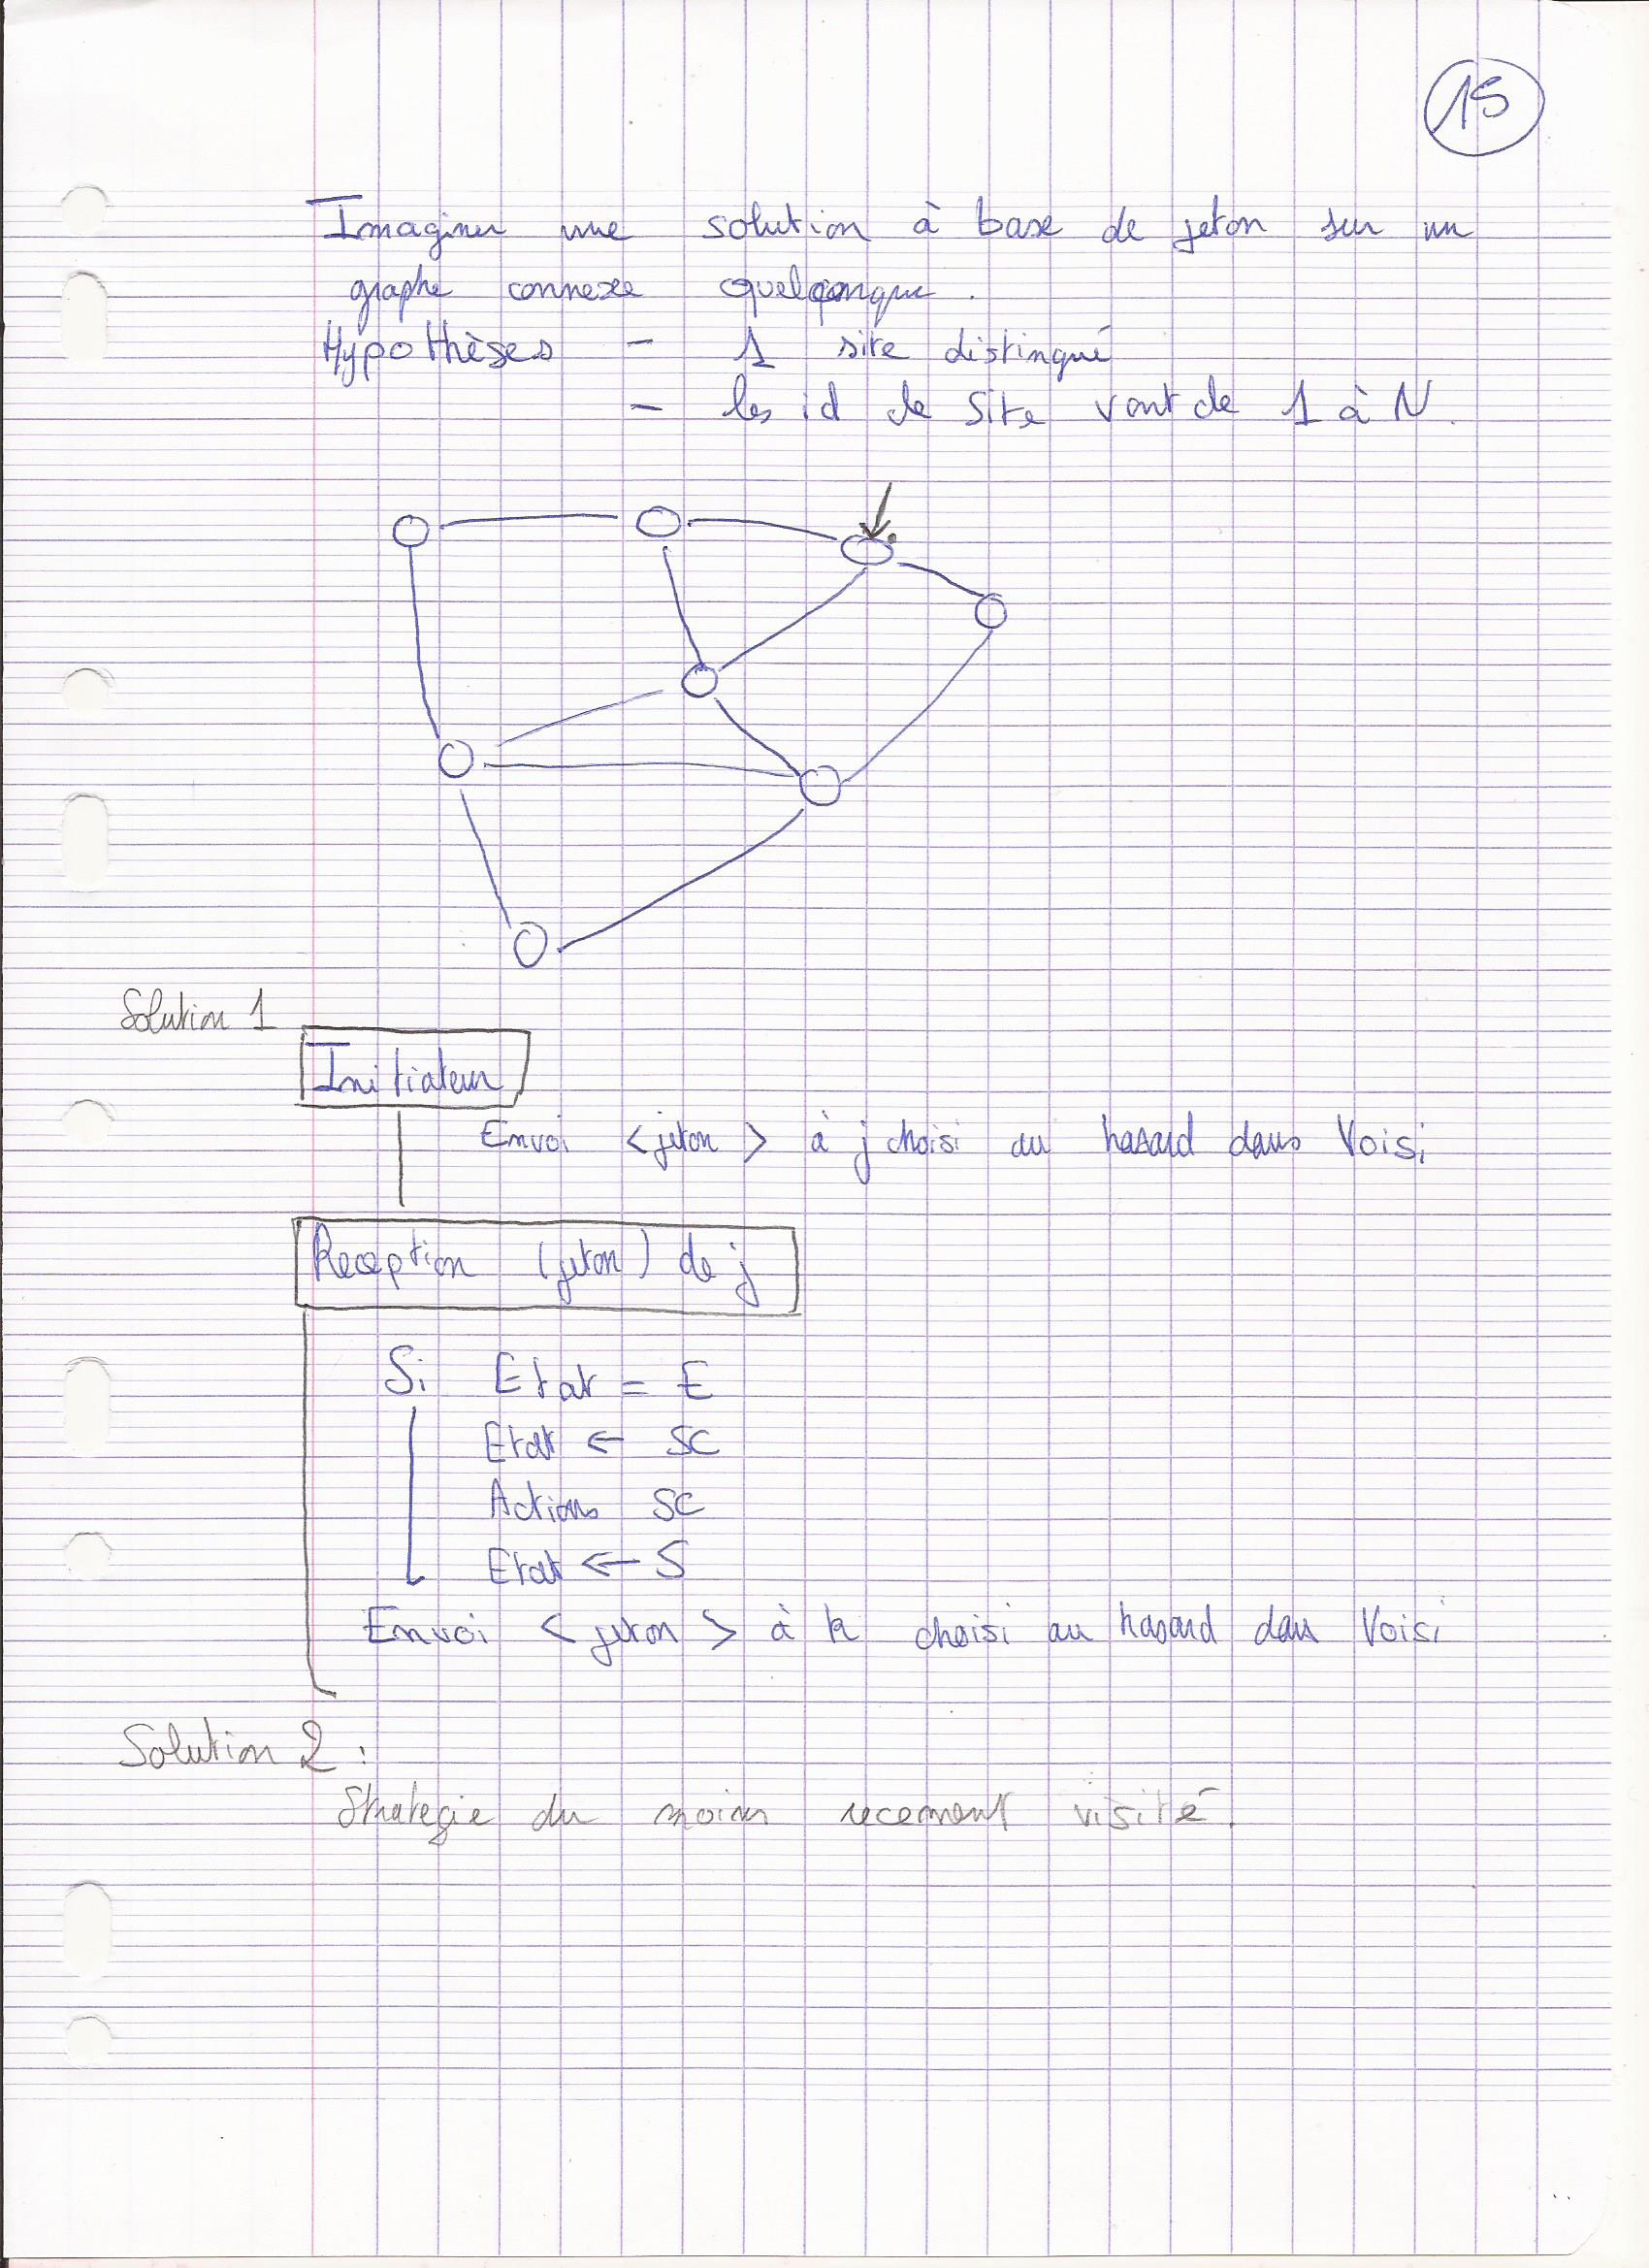 15
Imaginer une solution à base de jeton sur un
graphe connexe quelconque.
Hypothèses - 1 site distingué
- les id de site vont de 1 à N.
Solution 1
Initiateur
Envoi <jeton> à j choisi au hasard dans Voisi
Reception (jeton) de j
Si Etat = E
Etat ← SC
Actions SC
Etat ← S
Envoi <jeton> à k choisi au hasard dans Voisi
Solution 2 :
Strategie du moins recement visité.